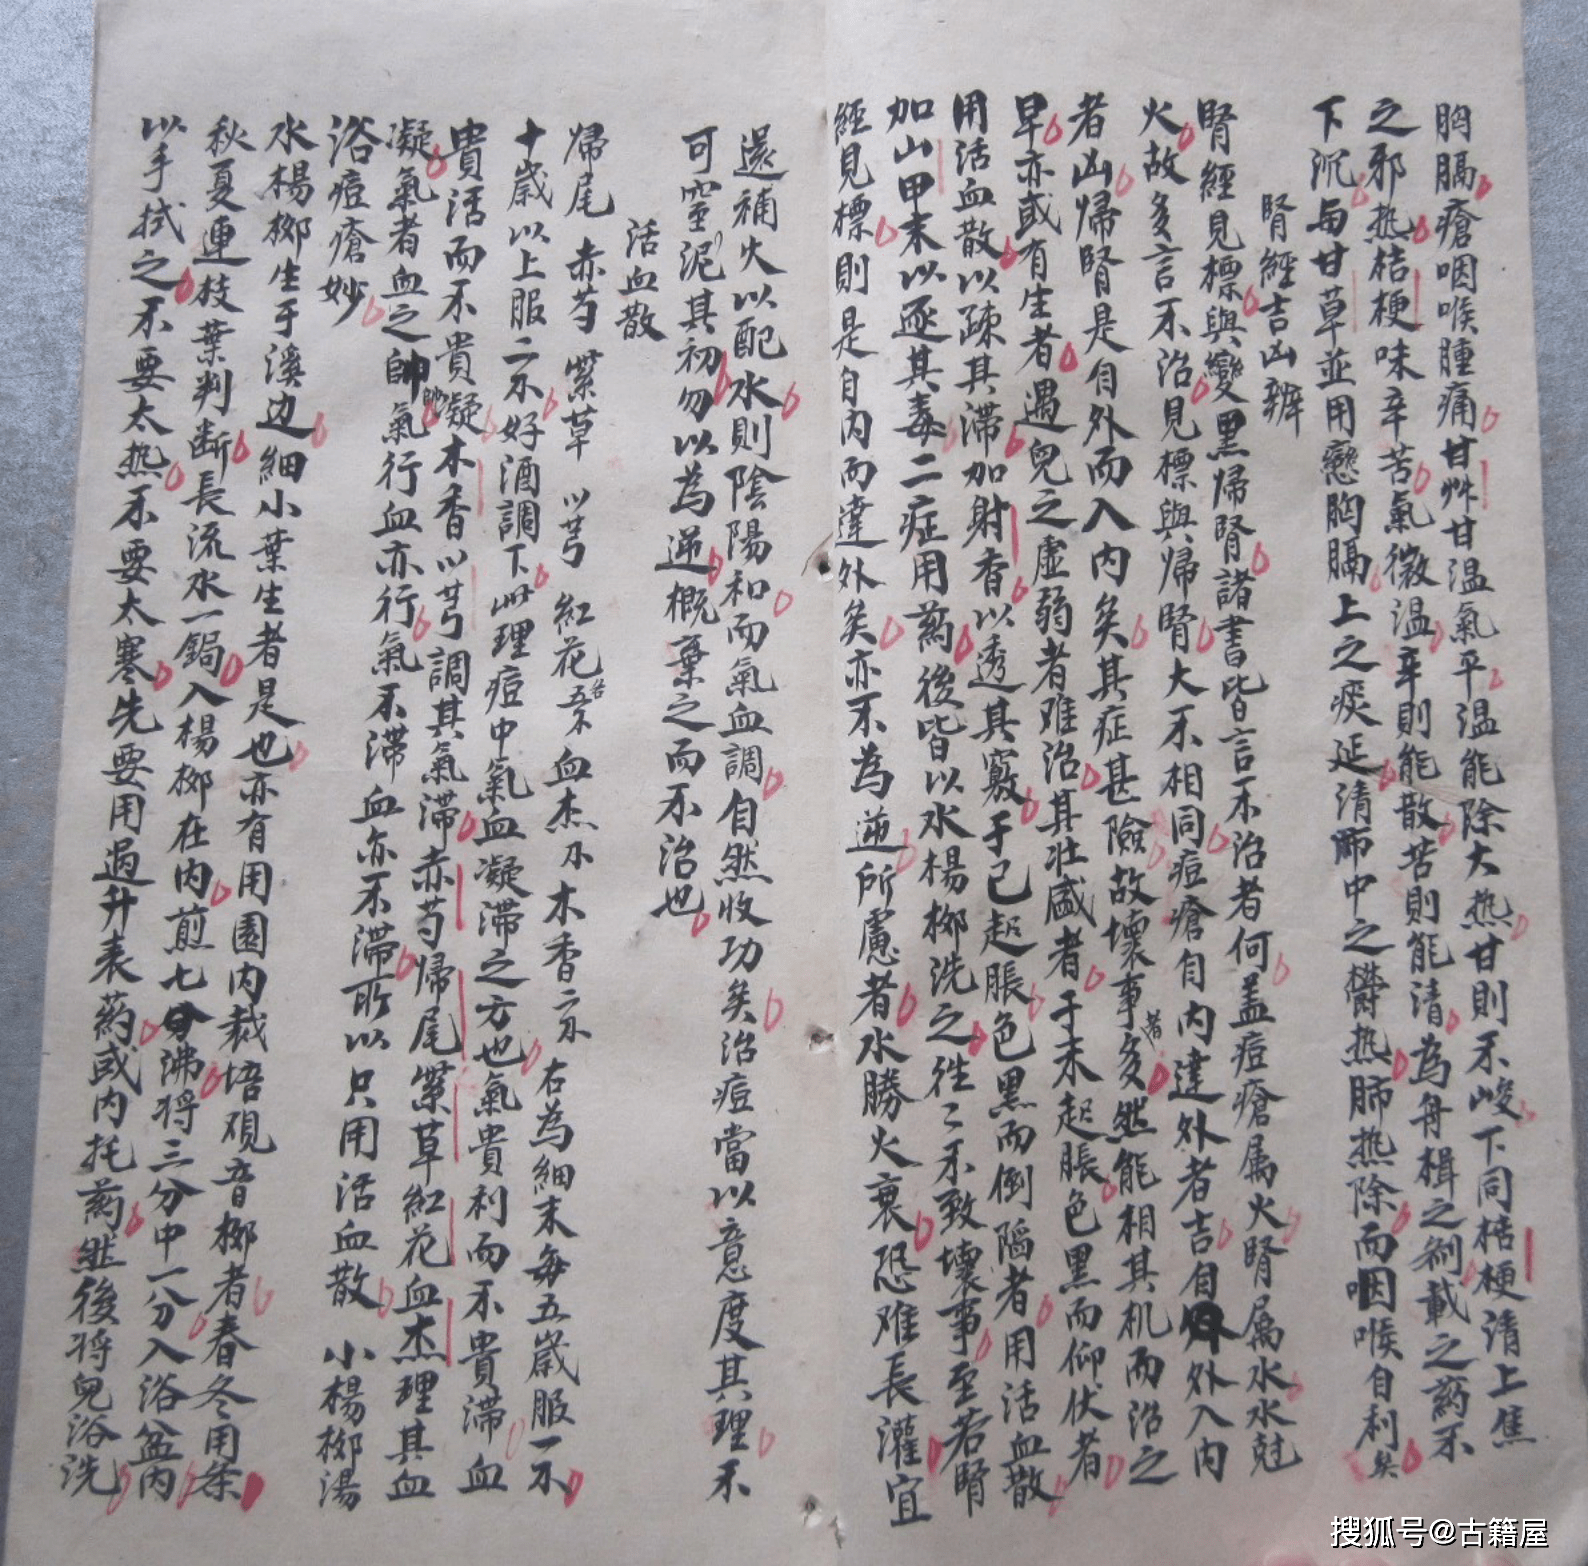 胸膈瘡咽喉腫痛甘艸甘温氣平温能除大热甘則不峻下同桔梗清上焦
之邪热桔梗味辛苦氣微温辛則能散苦則能清為舟楫之剂載之药不
下沉与甘草並用戀胸膈上之痰延清中之欝热肺热除而咽喉自利矣
腎經吉凶辨
腎經見標與變黑歸腎諸書皆言不治者何盖痘瘡属火腎属水水尅
火故多言不治見標與歸腎大不相同痘瘡自内達外者吉自外入内
者凶歸腎是自外而入内矣其症甚險故壞事多若然能相其机而治之
早亦或有生者遇兒之虚弱者难治其壮盛者于未起脹色黑而仰伏者
用活血散以疎其滞加射香以透其竅于已起脹色黑而倒陷者用活血散
加山甲末以逐其毒二症用药後皆以水楊柳洗之往々不致壞事至若腎
經見標則是自内而達外矣亦不為逆所慮者水勝火衰恐难長灌宜
還補火以配水則陰陽和而氣血調自然收功矣治痘當以意度其理不
可室泥其初勿以為逆概棄之而不治也
活血散
歸尾 赤芍 紫草 川芎 紅花各五不 血杰不木香二不 右為細末每五歲服一不
十歲以上服二不好酒調下此理痘中氣血凝滞之方也氣貴利而不貴滞血
貴活而不貴凝木香川芎調其氣滞赤芍歸尾紫草紅花血杰理其血
凝氣者血之帥帥氣行血亦行氣不滞血亦不滞所以只用活血散 小楊柳湯
浴痘瘡妙
水楊柳生于溪边細小葉生者是也亦有用園内裁培观音柳者春冬用条
秋夏連枝葉判断長流水一鍋入楊柳在内煎七沸将三分中一分入浴盆内
以手拭之不要太热不要太寒先要用過升表药或内托药然後将兒浴洗
搜狐号@古籍屋